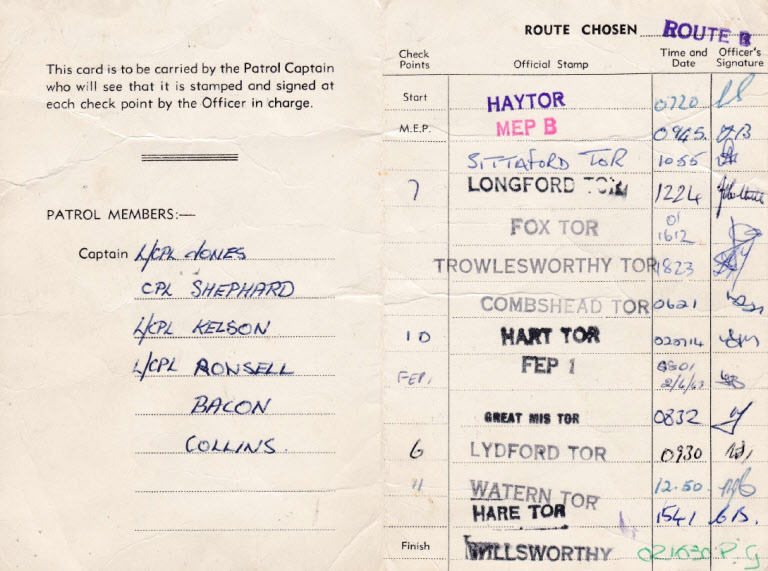 This card is to be carried by the Patrol Captain
who will see that it is stamped and signed at
each check point by the Officer in charge.
PATROL MEMBERS:—
Captain L/CPL JONES
CPL SHEPHARD
L/CPL KELSON
L/CPL RONSELL
BACON
COLLINS.
ROUTE CHOSEN ROUTE B
Check Points Official Stamp Time and Date Officer's Signature
Start HAYTOR 0720
M.E.P. MEP B 0945.
SITTAFORD TOR 1055
7 LONGFORD TOR 1224
FOX TOR 01 1612
TROWLESWORTHY TOR 1823
COMBSHEAD TOR 0621
10 HART TOR 020714
FEP1 FEP 1
GREAT MIS TOR 0832
6 LYDFORD TOR 0930
11 WATERN TOR 12.50
HARE TOR 1541
Finish WILLSWORTHY